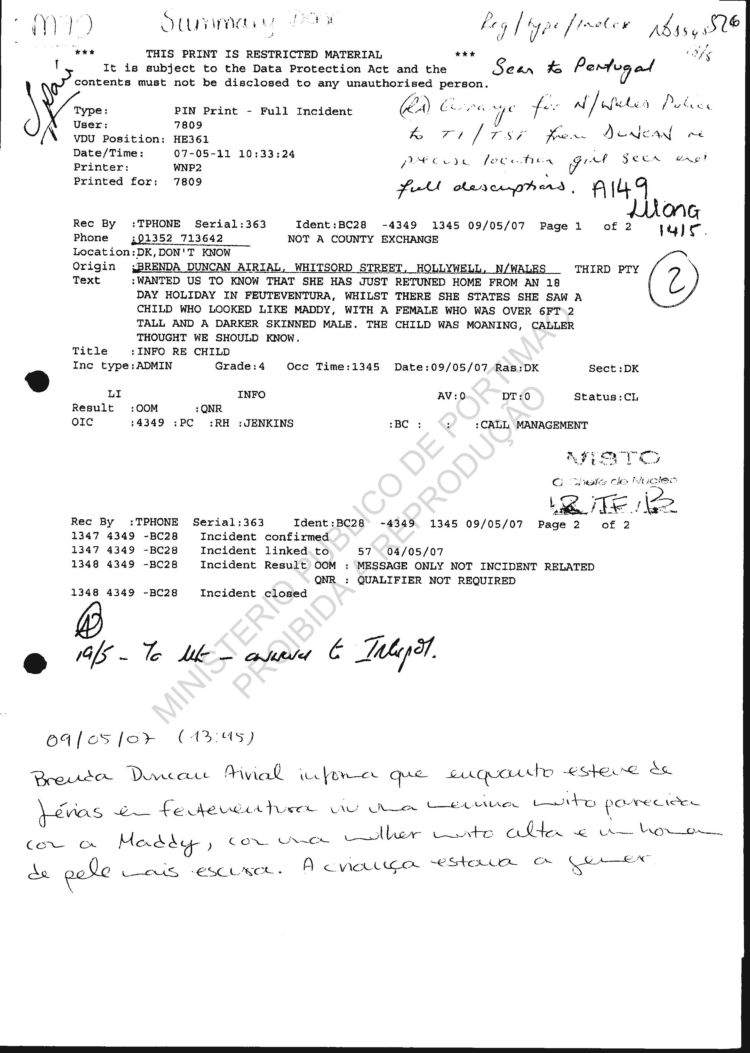 M90 Summary
Reg/type/index
526
15/5
Spain
*** THIS PRINT IS RESTRICTED MATERIAL ***
It is subject to the Data Protection Act and the
contents must not be disclosed to any unauthorised person.
Sean to Portugal
Type: PIN Print - Full Incident
User: 7809
VDU Position: HE361
Date/Time: 07-05-11 10:33:24
Printer: WNP2
Printed for: 7809
Arrange for N/Wales Police
to TI/TST from DUNCAN re
precise location girl seen and
full descriptions. A149
14/5.
Rec By :TPHONE Serial:363 Ident:BC28 -4349 1345 09/05/07 Page 1 of 2
Phone :01352 713642 NOT A COUNTY EXCHANGE
Location:DK,DON'T KNOW
Origin :BRENDA DUNCAN AIRIAL, WHITSORD STREET, HOLLYWELL, N/WALES THIRD PTY
2
Text :WANTED US TO KNOW THAT SHE HAS JUST RETUNED HOME FROM AN 18
DAY HOLIDAY IN FEUTEVENTURA, WHILST THERE SHE STATES SHE SAW A
CHILD WHO LOOKED LIKE MADDY, WITH A FEMALE WHO WAS OVER 6FT 2
TALL AND A DARKER SKINNED MALE. THE CHILD WAS MOANING, CALLER
THOUGHT WE SHOULD KNOW.
Title :INFO RE CHILD
Inc type:ADMIN Grade:4 Occ Time:1345 Date:09/05/07 Ras:DK Sect:DK
LI INFO AV:0 DT:0 Status:CL
Result :OOM :QNR
OIC :4349 :PC :RH :JENKINS :BC : : :CALL MANAGEMENT
VISTO
O Chefe do Núcleo
Rec By :TPHONE Serial:363 Ident:BC28 -4349 1345 09/05/07 Page 2 of 2
1347 4349 -BC28 Incident confirmed
1347 4349 -BC28 Incident linked to 57 04/05/07
1348 4349 -BC28 Incident Result OOM : MESSAGE ONLY NOT INCIDENT RELATED
QNR : QUALIFIER NOT REQUIRED
1348 4349 -BC28 Incident closed
19/5 - To
MINISTERIO PUBLICO DE PORTIMAO
PROIBIDA A REPRODUÇÃO
09/05/07 (13:45)
Brenda Duncan Airial informa que enquanto esteve de
férias em feuteventura viu uma menina muito parecida
com a Maddy, com uma mulher muito alta e um homem
de pele mais escura. A criança estava a gemer